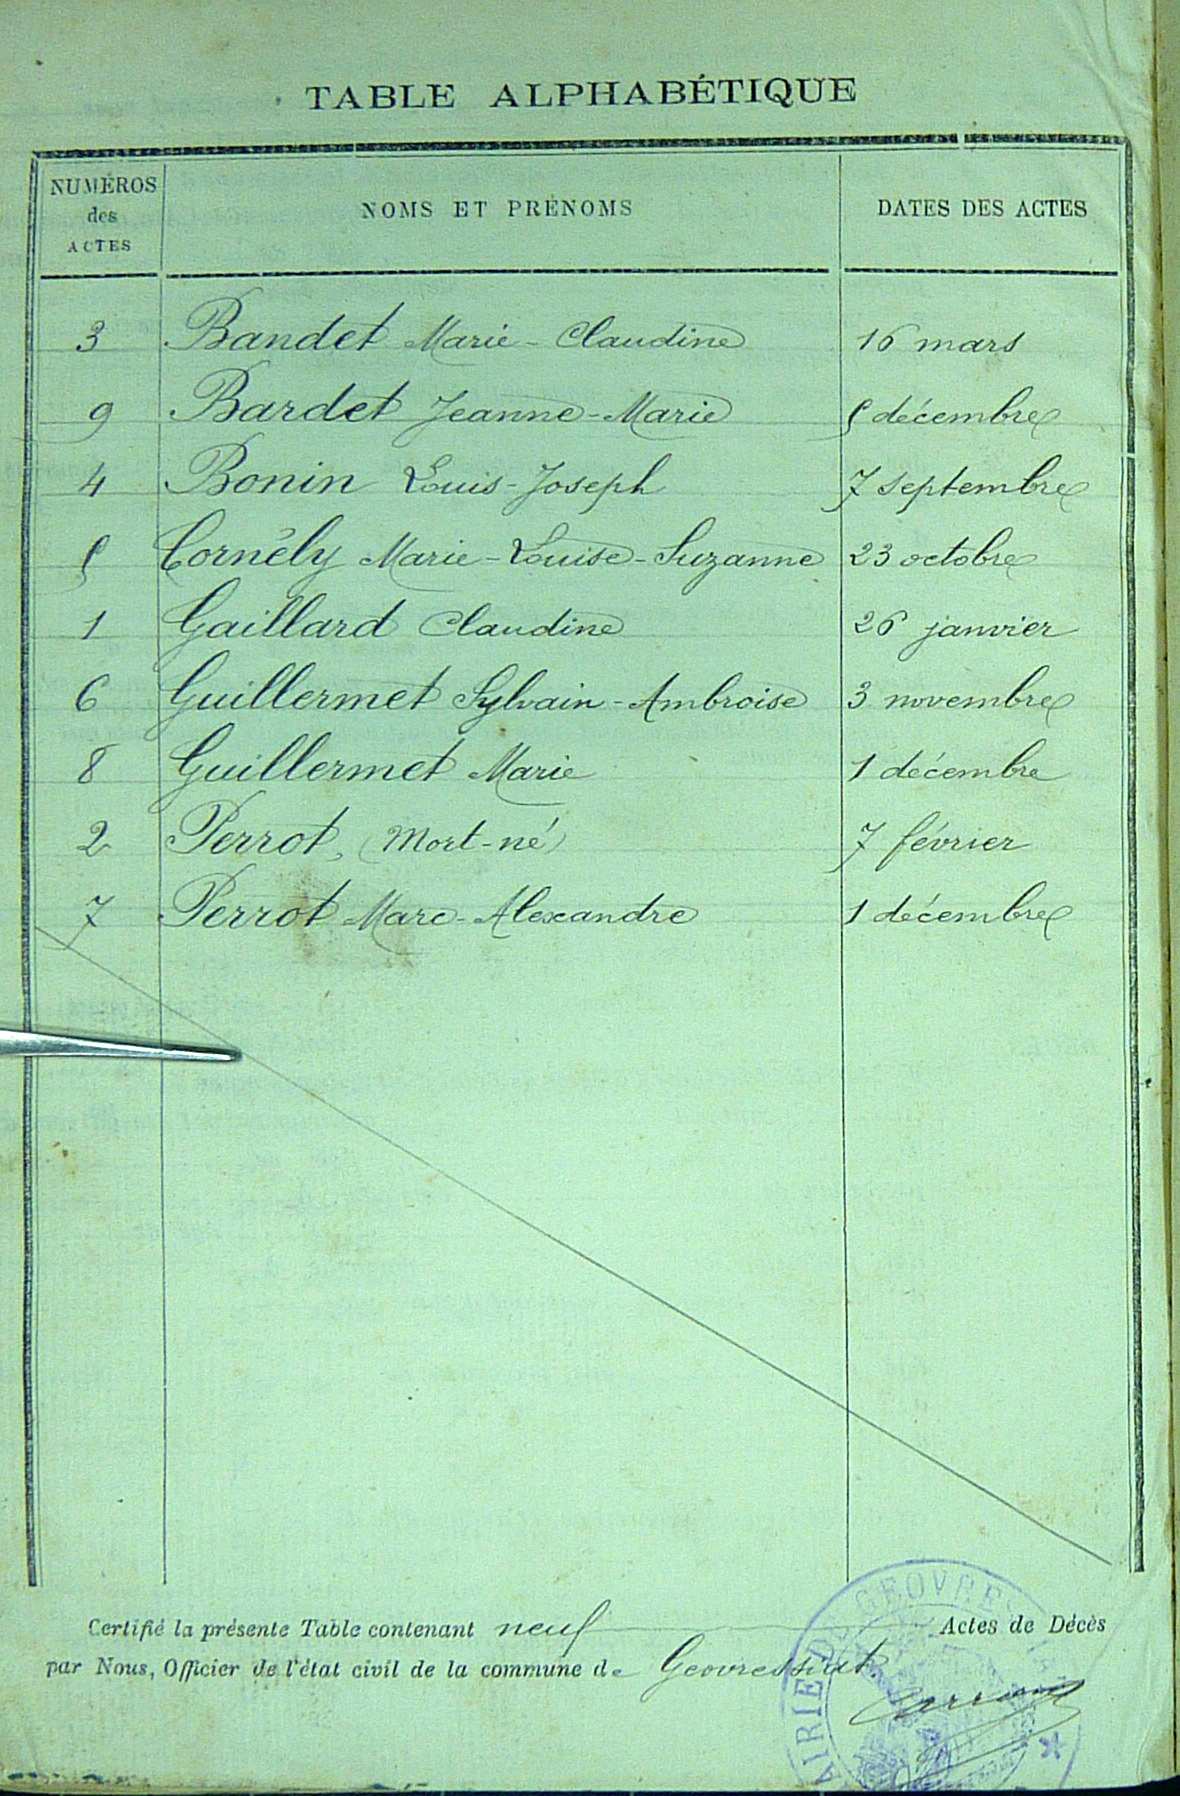 TABLE ALPHABÉTIQUE
NUMÉROS des ACTES NOMS ET PRÉNOMS DATES DES ACTES
3 Bandet Marie-Claudine 16 mars
9 Bardet Jeanne-Marie 5 décembre
4 Bonin Louis-Joseph 7 septembre
5 Cornély Marie-Louise-Suzanne 23 octobre
1 Gaillard Claudine 26 janvier
6 Guillermet Sylvain-Ambroise 3 novembre
8 Guillermet Marie 1 décembre
2 Perrot, (Mort-né) 7 février
7 Perrot Marc-Alexandre 1 décembre
Certifié la présente Table contenant neuf Actes de Décès
par Nous, Officier de l'état civil de la commune de Geovressiat.